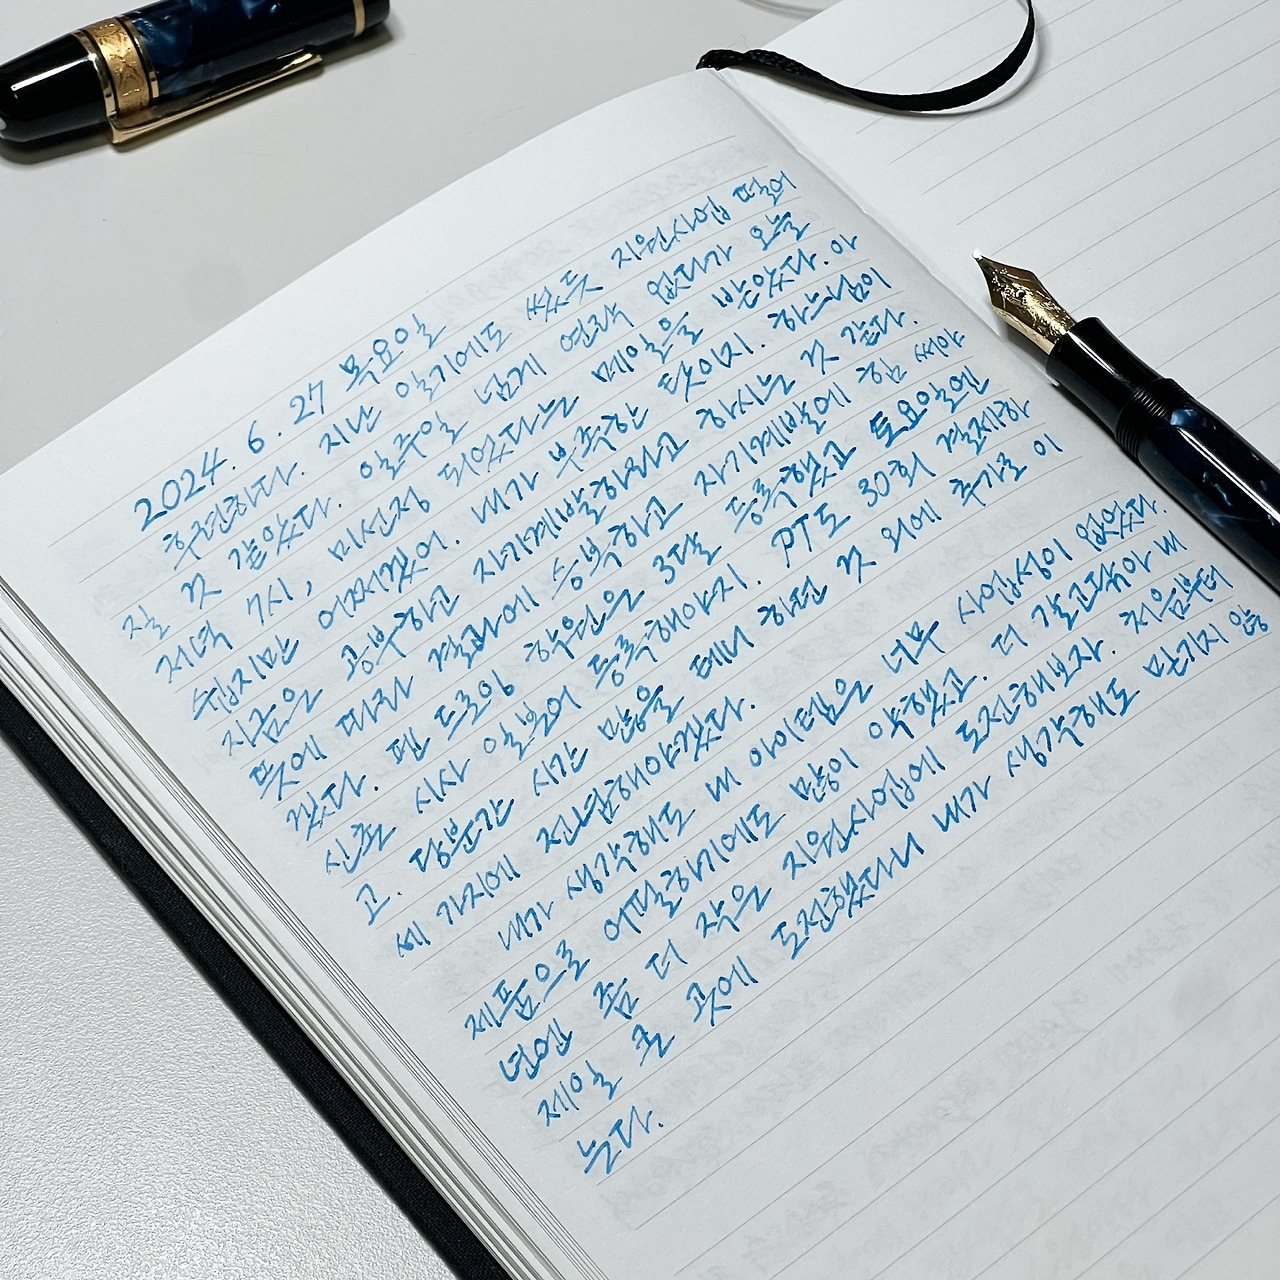 2024. 6. 27 목요일
후련하다. 지난 일기에도 썼듯 지원사업 떨어
질 것 같았다. 일주일 넘게 연락 없다가 오늘
저녁 7시, 미선정 되었다는 메일을 받았다. 아
쉽지만 어쩌겠어. 내가 부족한 탓이지. 하느님이
지금은 공부하고 자기계발하라고 하시는 것 같다.
뜻에 따라 결과에 승복하고 자기계발에 힘 써야
겠다. 펜 드로잉 학원은 3달 등록했고 토요일엔
신촌 시사 일본어 등록해야지. PT도 30회 결제하
고. 당분간 시간 많을 테니 하던 것 외에 추가로 이
세 가지에 전념해야겠다.
내가 생각해도 내 아이템은 너무 사업성이 없었다.
제품으로 어필하기에도 많이 약했고. 더 갈고닦아 내
년엔 좀 더 작은 지원사업에 도전해보자. 처음부터
제일 큰 곳에 도전했다니 내가 생각해도 믿기지 않
는다.